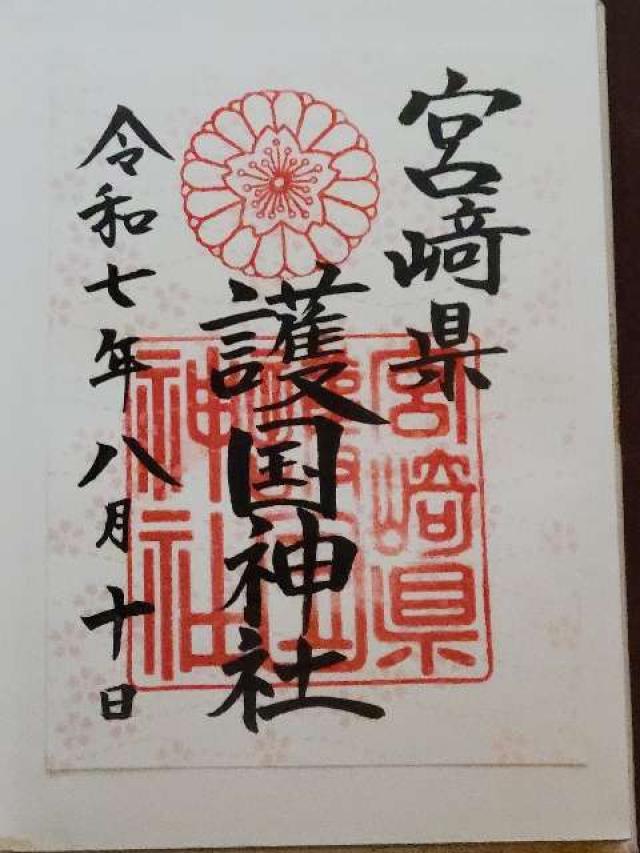 宮﨑県
護国神社
令和七年八月十日
宮﨑県
護国
神社